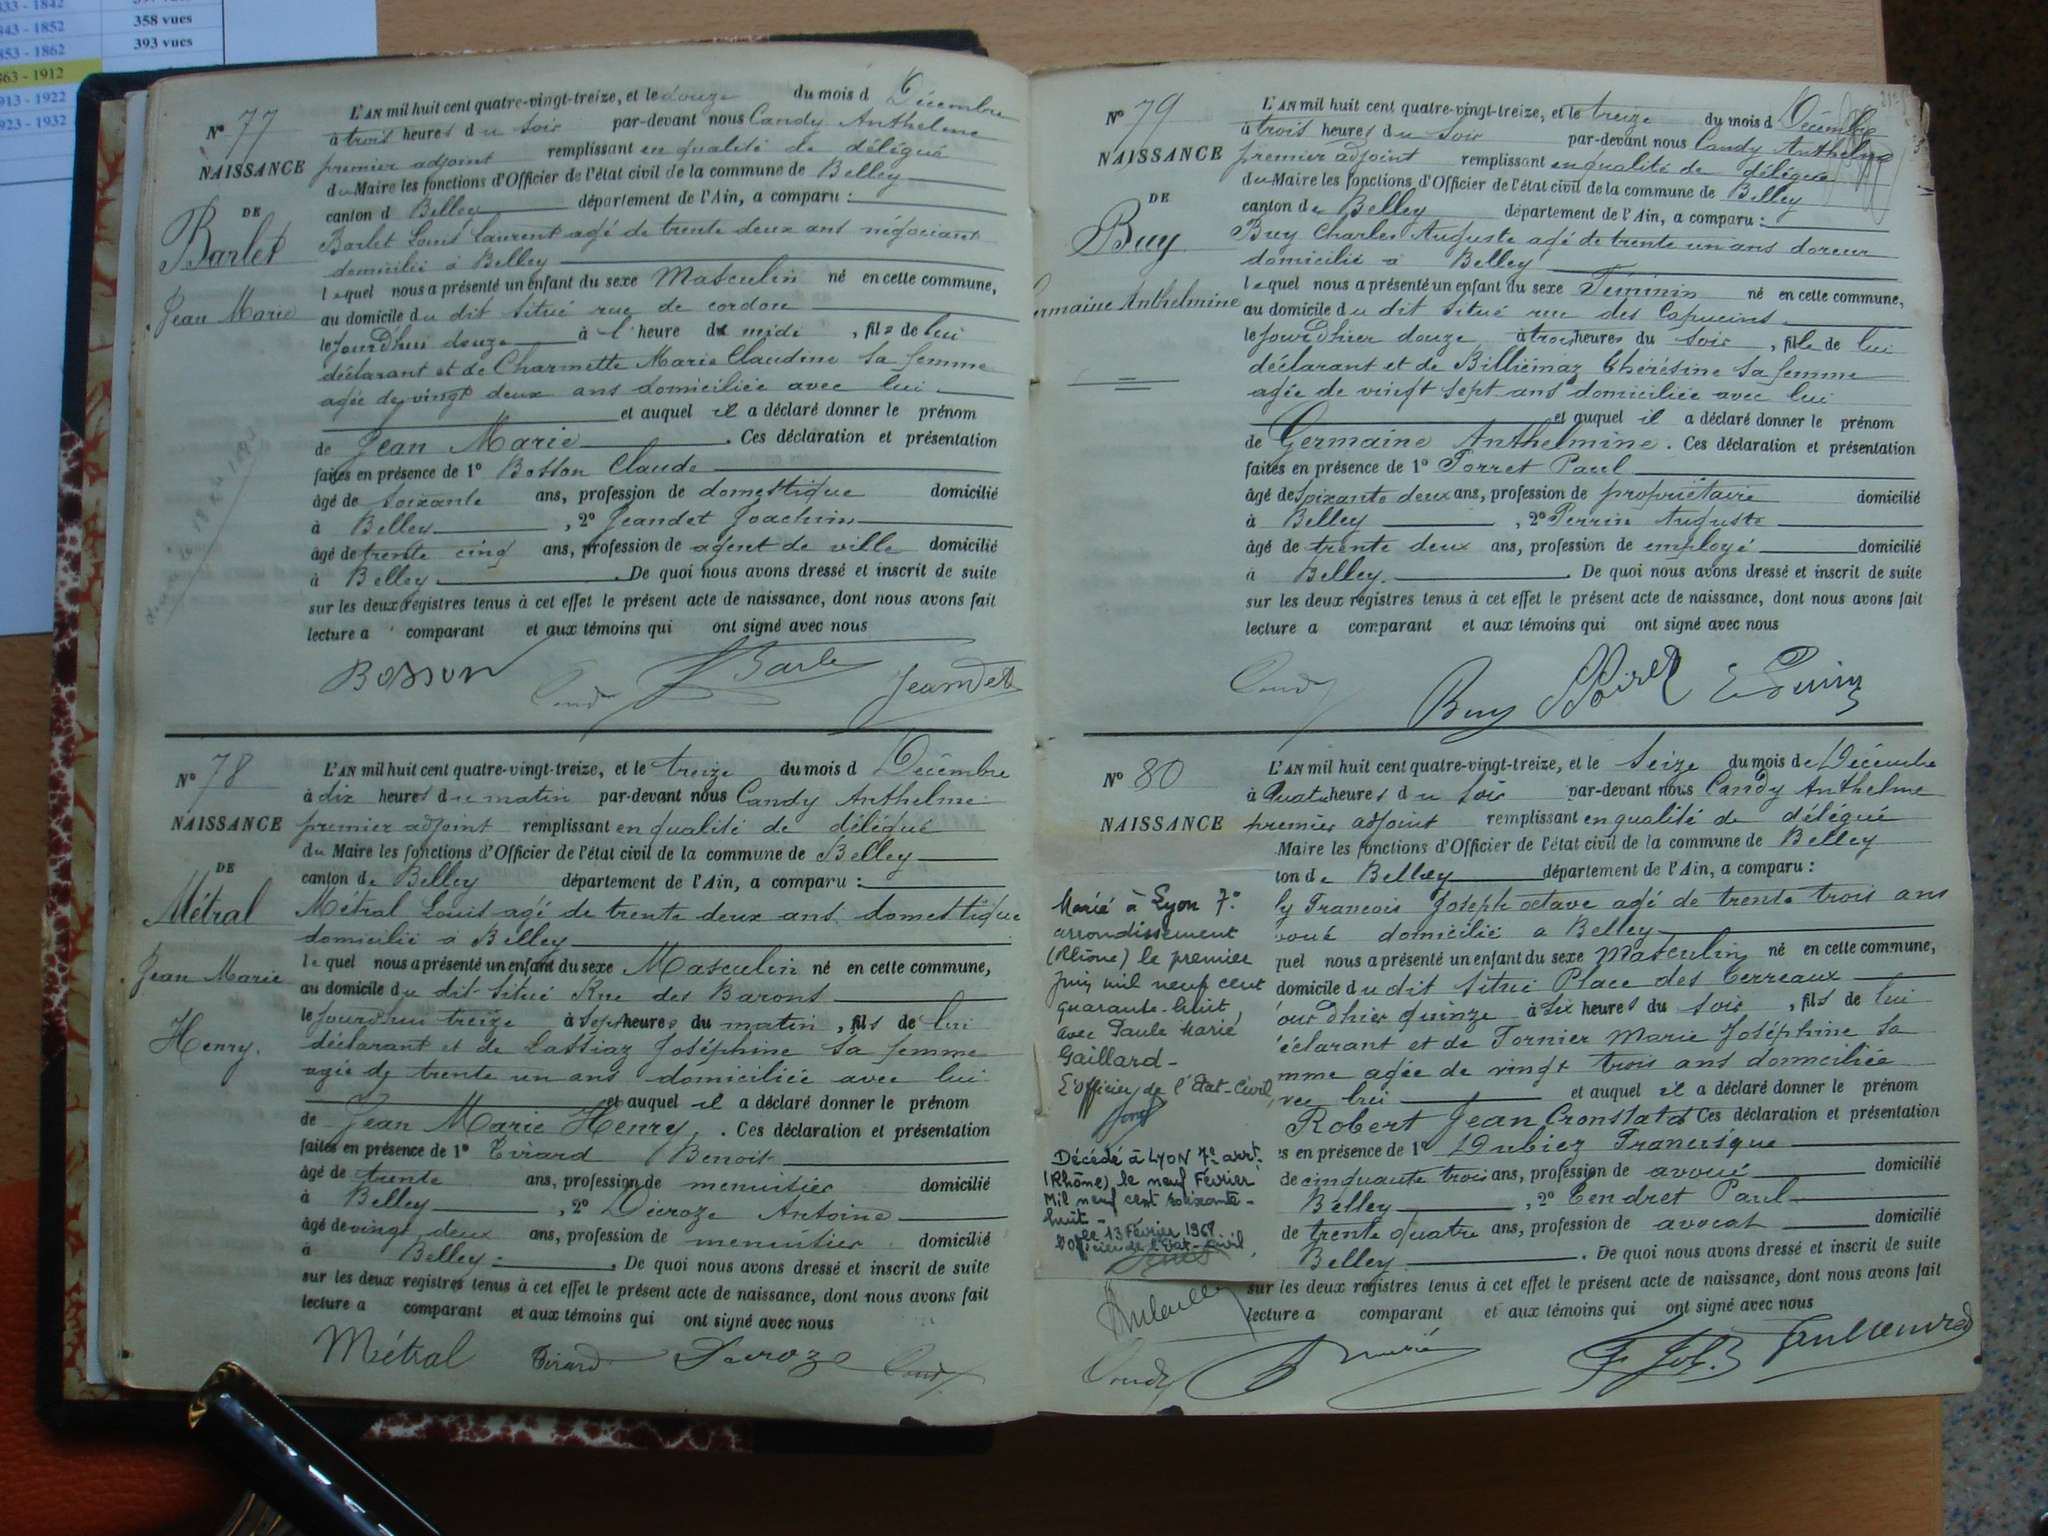 358 vues
393 vues
1853 - 1862
1863 - 1912
1913 - 1922
1923 - 1932
N° 77
NAISSANCE
DE
Barlet
Jean Marie
L'AN mil huit cent quatre-vingt-treize, et le douze du mois d Décembre
à trois heures du soir par-devant nous Candy Anthelme
premier adjoint remplissant en qualité de délégué
du Maire les fonctions d'Officier de l'état civil de la commune de Belley
canton d Belley département de l'Ain, a comparu :
Barlet Louis Laurent agé de trente deux ans négociant
domicilié à Belley
lequel nous a présenté un enfant du sexe Masculin né en cette commune,
au domicile du dit situé rue de cordon
le jourd'hui douze à l'heure de midi, fils de lui
déclarant et de Charmette Marie Claudine sa femme
agée de vingt deux ans domiciliée avec lui
et auquel il a déclaré donner le prénom
de Jean Marie. Ces déclaration et présentation
faites en présence de 1° Bosson Claude
âgé de soixante ans, profession de domestique domicilié
à Belley, 2° Jeandet Joachim
âgé de trente cinq ans, profession de agent de ville domicilié
à Belley. De quoi nous avons dressé et inscrit de suite
sur les deux registres tenus à cet effet le présent acte de naissance, dont nous avons fait
lecture a comparant et aux témoins qui ont signé avec nous
Bosson Candy Barle Jeandet
N° 78
NAISSANCE
DE
Métral
Jean Marie
Henry.
L'AN mil huit cent quatre-vingt-treize, et le treize du mois d Décembre
à dix heures du matin par-devant nous Candy Anthelme
premier adjoint remplissant en qualité de délégué
du Maire les fonctions d'Officier de l'état civil de la commune de Belley
canton de Belley département de l'Ain, a comparu :
Métral Louis agé de trente deux ans domestique
domicilié à Belley
lequel nous a présenté un enfant du sexe Masculin né en cette commune,
au domicile du dit situé Rue des Barons
le jourd'hui treize à sept heures du matin, fils de lui
déclarant et de Lassiaz Joséphine sa femme
agée de trente un ans domiciliée avec lui
et auquel il a déclaré donner le prénom
de Jean Marie Henry. Ces déclaration et présentation
faites en présence de 1° Tirard Benoit
âgé de trente ans, profession de menuisier domicilié
à Belley, 2° Décroze Antoine
âgé de vingt deux ans, profession de menuisier domicilié
à Belley. De quoi nous avons dressé et inscrit de suite
sur les deux registres tenus à cet effet le présent acte de naissance, dont nous avons fait
lecture a comparant et aux témoins qui ont signé avec nous
Métral Tirard Decroze Candy
N° 79
NAISSANCE
DE
Buy
Germaine Anthelmine
L'AN mil huit cent quatre-vingt-treize, et le treize du mois d Décembre
à trois heures du soir par-devant nous Candy Anthelme
premier adjoint remplissant en qualité de délégué
du Maire les fonctions d'Officier de l'état civil de la commune de Belley
canton de Belley département de l'Ain, a comparu :
Buy Charles Auguste agé de trente un ans doreur
domicilié à Belley
lequel nous a présenté un enfant du sexe Féminin né en cette commune,
au domicile du dit situé rue des Capucins
le jour d'hier douze à trois heures du soir, fille de lui
déclarant et de Billiémaz Thérésine sa femme
agée de vingt sept ans domiciliée avec lui
et auquel il a déclaré donner le prénom
de Germaine Anthelmine. Ces déclaration et présentation
faites en présence de 1° Porret Paul
âgé de soixante deux ans, profession de propriétaire domicilié
à Belley, 2° Perrin Auguste
âgé de trente deux ans, profession de employé domicilié
à Belley. De quoi nous avons dressé et inscrit de suite
sur les deux registres tenus à cet effet le présent acte de naissance, dont nous avons fait
lecture a comparant et aux témoins qui ont signé avec nous
Candy Buy
N° 80
NAISSANCE
Marié à Lyon 7e
arrondissement
(Rhône) le premier
Juin mil neuf cent
quarante-huit
avec Paule Marie
Gaillard-
L'officier de l'Etat-Civil,
Décédé à LYON 7e arrt.
(Rhône), le neuf Février
Mil neuf cent soixante-
huit-
Le 13 Février 1968
L'officier de l'Etat-Civil
L'AN mil huit cent quatre-vingt-treize, et le seize du mois de Décembre
à Quatre heures du soir par-devant nous Candy Anthelme
premier adjoint remplissant en qualité de délégué
Maire les fonctions d'Officier de l'état civil de la commune de Belley
ton de Belley département de l'Ain, a comparu :
ly François Joseph octave agé de trente trois ans
voué domicilié a Belley
quel nous a présenté un enfant du sexe Masculin né en cette commune,
domicile du dit situé Place des Terreaux
our d'hier quinze à six heures du soir, fils de lui
éclarant et de Tornier Marie Joséphine sa
mme agée de vingt trois ans domiciliée
vec lui et auquel il a déclaré donner le prénom
Robert Jean Cronstadt Ces déclaration et présentation
es en présence de 1° Dubiez Francisque
de cinquante trois ans, profession de avoué domicilié
Belley, 2° Tendret Paul
de trente quatre ans, profession de avocat domicilié
Belley. De quoi nous avons dressé et inscrit de suite
sur les deux registres tenus à cet effet le présent acte de naissance, dont nous avons fait
lecture a comparant et aux témoins qui ont signé avec nous
Candy